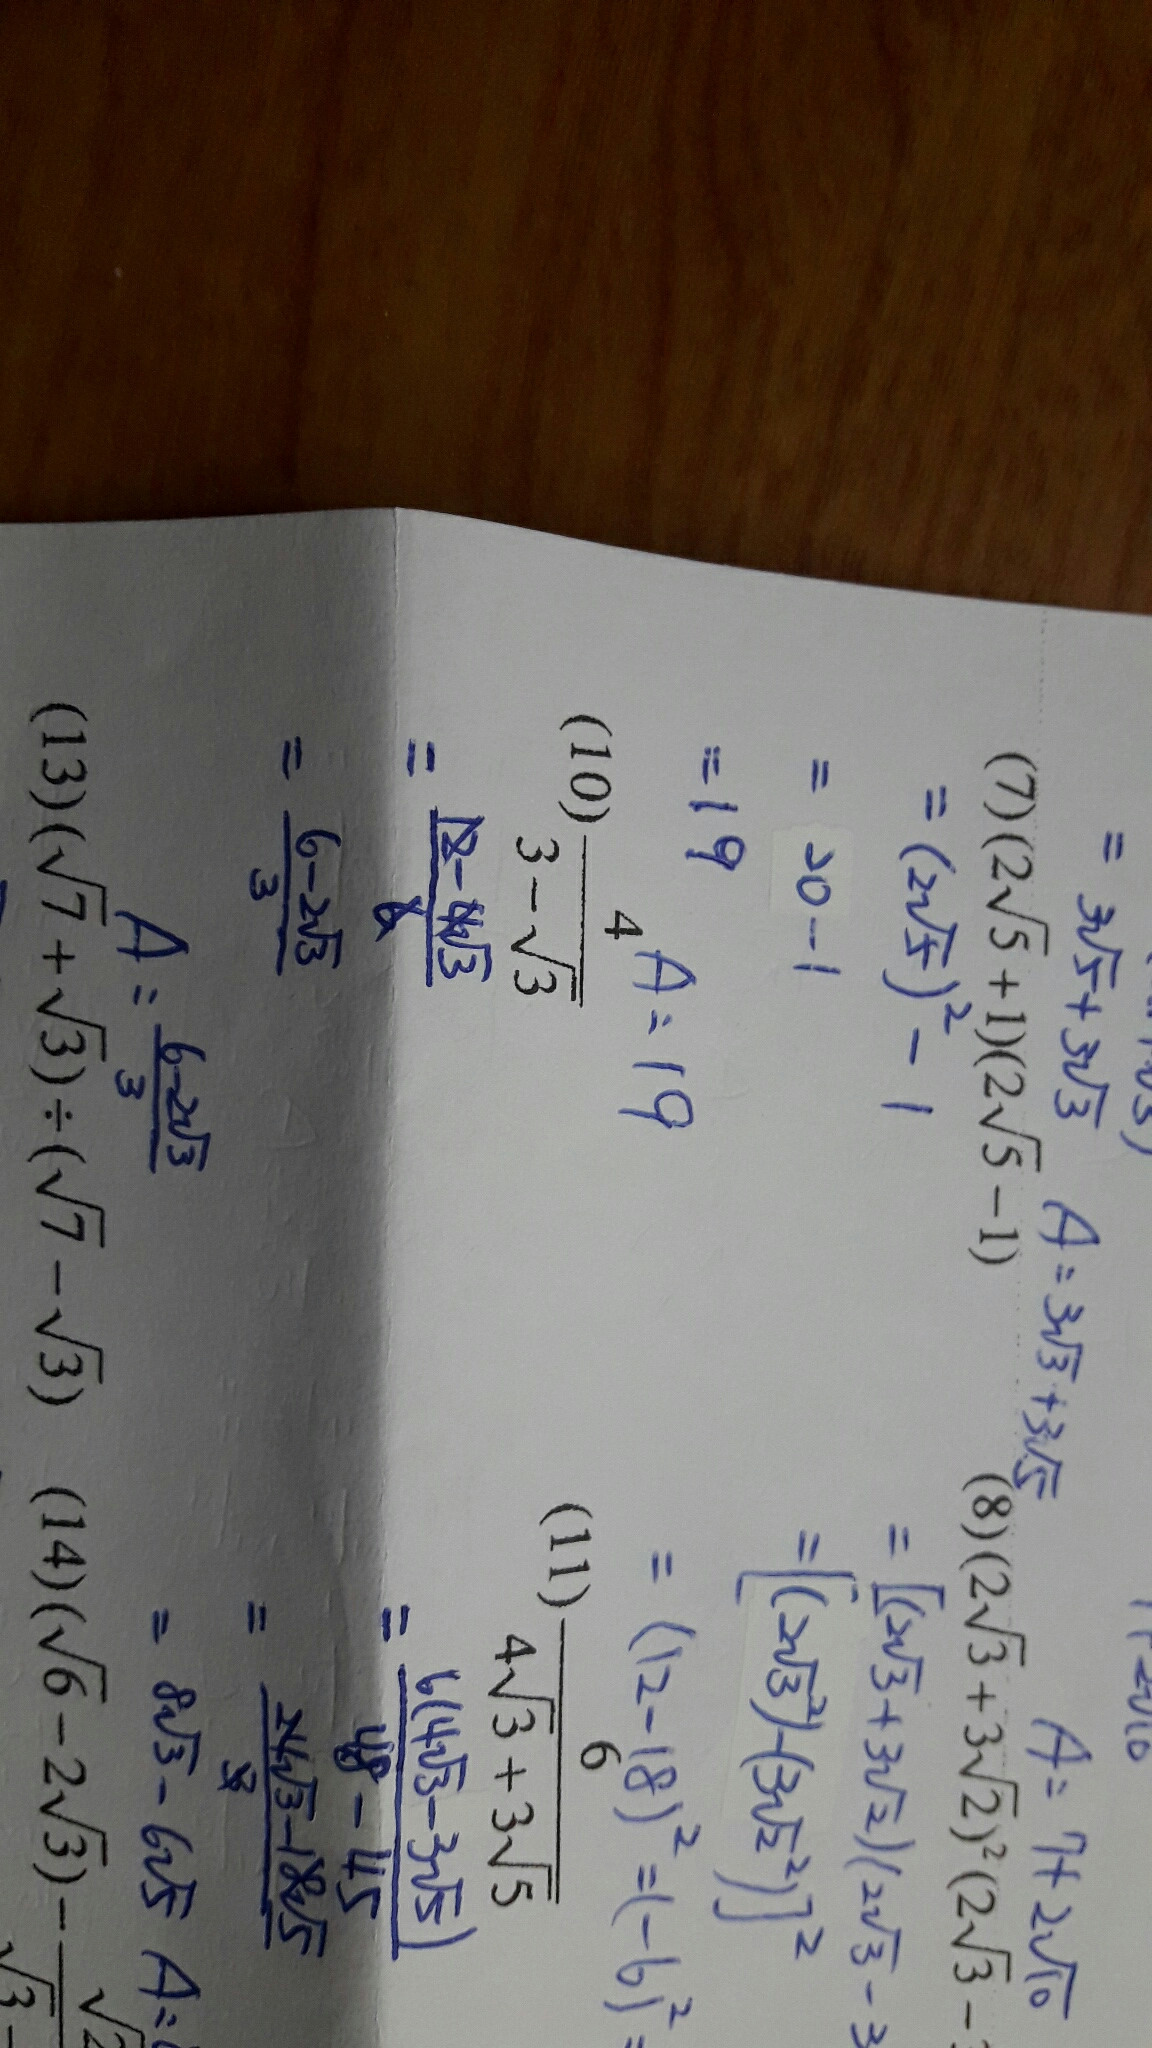 = 3√5+3√3 A=3√3+3√5
A= 7+2√10
(7)(2√5+1)(2√5−1)
= (2√5)² − 1
= 20−1
=19
A=19
(8)(2√3+3√2)²(2√3−
= [(2√3+3√2)(2√3−3
=[(2√3²)−(3√2²)]²
= (12−18)² =(−6)² =
(10) 4/(3−√3)
= (12−4√3)/6
= (6−2√3)/3
A= (6−2√3)/3
(11) 6/(4√3+3√5)
= 6(4√3−3√5)/(48−45)
= (24√3−18√5)/3
= 8√3−6√5 A=
(13)(√7+√3)÷(√7−√3)
(14)(√6−2√3)−